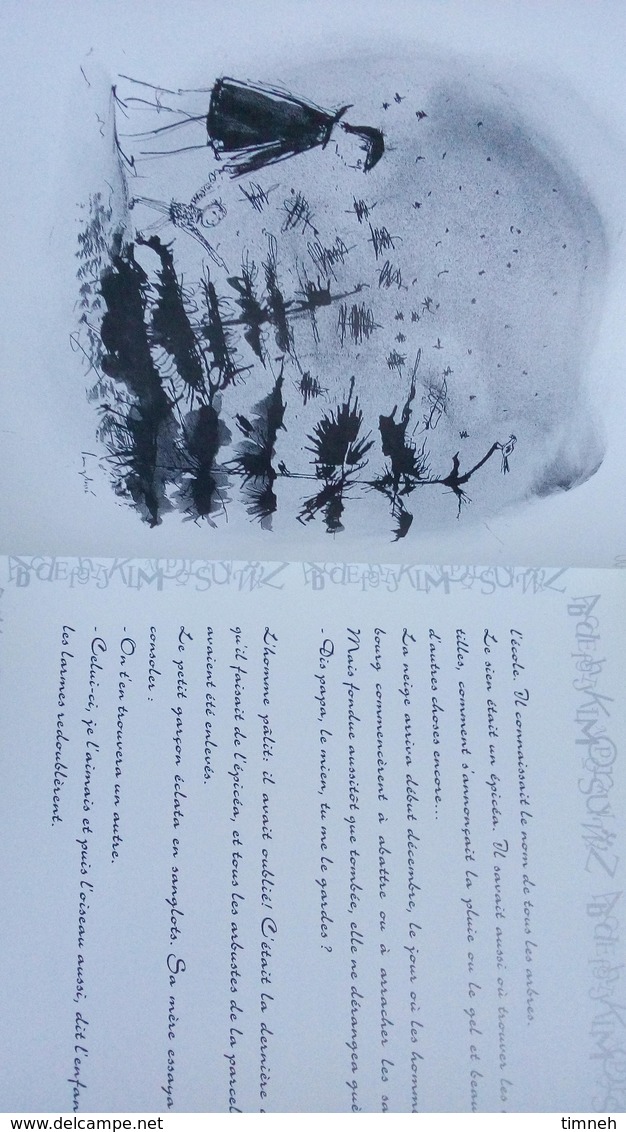 l'école. Il connaissait le nom de tous les arbres.
Le sien était un épicéa. Il savait aussi où trouver les
tilles, comment s'annonçait la pluie ou le gel et beau
d'autres choses encore...
La neige arriva début décembre, le jour où les homm
bourg commencèrent à abattre ou à arracher les sa
Mais fondue aussitôt que tombée, elle ne dérangea guè
- Dis papa, le mien, tu me le gardes ?
L'homme pâlit: il avait oublié! C'était la dernière
qu'il faisait de l'épicéa, et tous les arbustes de la parcel
avaient été enlevés.
Le petit garçon éclata en sanglots. Sa mère essaya
consoler :
- On t'en trouvera un autre.
- Celui-ci, je l'aimais et puis l'oiseau aussi, dit l'enfan
les larmes redoublèrent.
www.delcampe.net
timneh